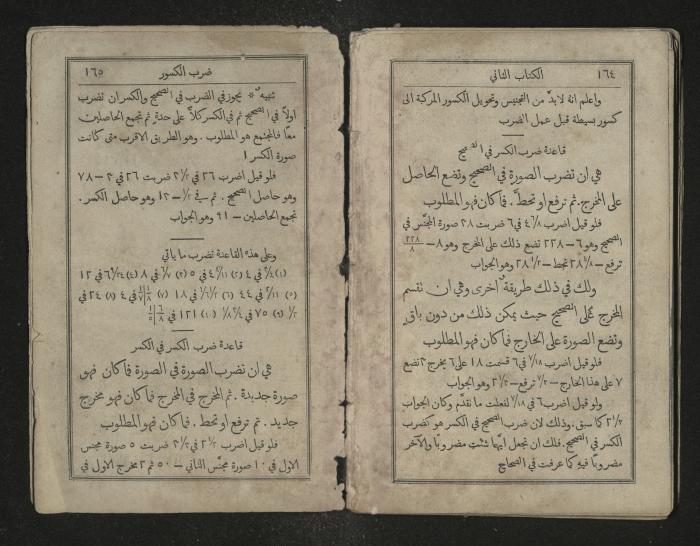 ١٦٤ الكتاب الثاني
واعلم انه لا بدَّ من التجنيس وتحويل الكسور المركبة الى
كسور بسيطة قبل عمل الضرب
قاعدة ضرب الكسر في الصحيح
هي ان تضرب الصورة في الصحيح وتضع الحاصل
على المخرج. ثم ترفع او تحطّ. فما كان فهو المطلوب
فلو قيل اضرب في ٦ ضربت ٣٨ صورة المجنّس في
الصحيح وهو ٦ – ٢٢٨ تضع ذلك على المخرج وهو ٨ – ٢٢٨/٨
ترفع – ٢٨ ٤/٨ تحط – ٢٨ ١/٢ وهو الجواب
ولك في ذلك طريقةٌ اخرى وهي ان نقسم
المخرج على الصحيح حيث يمكن ذلك من دون باقٍ
وتضع الصورة على الخارج فما كان فهو المطلوب
فلو قيل اضرب ٧/١٨ في ٦ قسمت ١٨ على ٦ يخرج ٣ تضع
٧ على هذا الخارج – ٧/٣ ترفع – ٢ ١/٣ وهو الجواب
ولو قيل اضرب ٦ في ٧/١٨ لفعلت ما نقدَّم وكان الجواب
٢ ١/٣ كما سبق. وذلك لان ضرب الصحيح في الكسر هو كضرب
الكسر في الصحيح. فلك ان تجعل ايّهما شئت مضروبًا والآخر
مضروبًا فيهِ كما عرفت في الصحاح
ضرب الكسور ١٦٥
تنبيهٌ * يجوز في الضرب في الصحيح والكسر ان تضرب
اولًا في الصحيح ثم في الكسر كلًّا على حدة. ثم تجمع الحاصلين
معًا فالمجتمع هو المطلوب. وهو الطريق الاقرب متى كانت
صورة الكسر ١
فلو قيل اضرب ٢٦ في ضربت ٢٦ في ٣ – ٧٨
وهو حاصل الصحيح. ثم في ١/٢ – ١٣ وهو حاصل الكسر.
تجمع الحاصلين – ٩١ وهو الجواب
وعلى هذه القاعدة تضرب ما ياتي
(١) في ٤ (٢) في ٥ (٣) في ٨ (٤) في ١٢
(٥) في ٤٤ (٦) في ١٨ (٧) في ٤ (٨) ٢٤ في
(٩) ٧٥ في (١٠) ١٢١ في
قاعدة ضرب الكسر في الكسر
هي ان تضرب الصورة في الصورة فما كان فهو
صورة جديدة. ثم المخرج في المخرج فما كان فهو مخرج
جديد. ثم ترفع او تحط. فما كان فهو المطلوب
فلو قيل اضرب في ضربت ٥ صورة مجنس
الاول في ١٠ صورة مجنّس الثاني – ٥٠ ثم ٢ مخرج الاول في